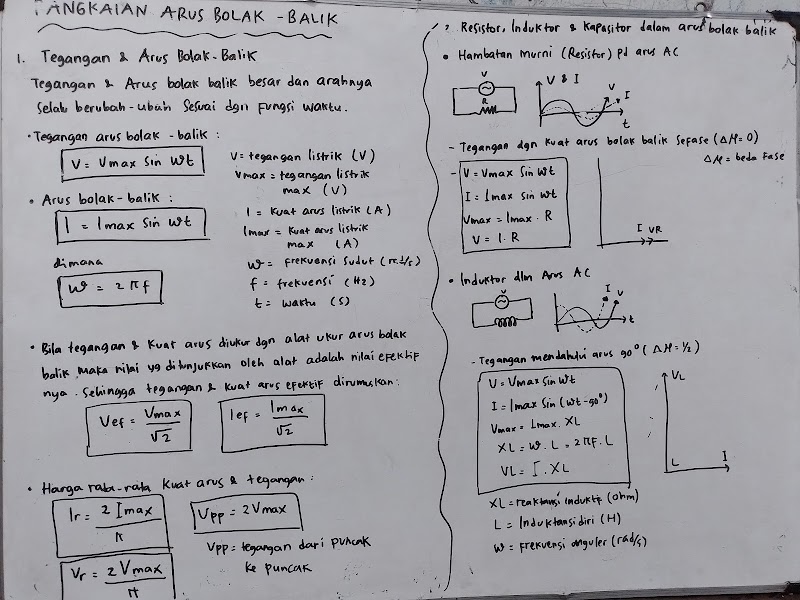 RANGKAIAN ARUS BOLAK - BALIK
1. Tegangan & Arus Bolak-Balik
Tegangan & Arus bolak balik besar dan arahnya
Selalu berubah-ubah Sesuai dgn Fungsi waktu.
• Tegangan arus bolak - balik :
V = Vmax Sin ωt
V = tegangan listrik (V)
Vmax = tegangan listrik
max (V)
• Arus bolak-balik :
I = Imax Sin ωt
I = Kuat arus listrik (A)
Imax = Kuat arus listrik
max (A)
dimana
ω = 2πf
ω = frekuensi sudut (rad/s)
f = frekuensi (Hz)
t = waktu (s)
• Bila tegangan & Kuat arus diukur dgn alat ukur arus bolak
balik, maka nilai yg ditunjukkan oleh alat adalah nilai efektif
nya. Sehingga tegangan & kuat arus efektif dirumuskan:
Vef = Vmax/√2
Ief = Imax/√2
• Harga rata-rata Kuat arus & tegangan :
Ir = 2 Imax/π
Vpp = 2Vmax
Vr = 2 Vmax/π
Vpp = tegangan dari puncak
ke puncak
2 Resistor, Induktor & Kapasitor dalam arus bolak balik
• Hambatan murni (Resistor) pd arus AC
V
R
V & I
V
I
t
- Tegangan dgn kuat arus bolak balik sefase (ΔM = 0)
ΔM = beda Fase
- V = Vmax Sin ωt
I = Imax Sin ωt
Vmax = Imax . R
V = I . R
I VR
• Induktor dlm Arus AC
V
I
V
t
- Tegangan mendahului arus 90° (ΔM = 1/2)
V = Vmax sin ωt
I = Imax Sin (ωt - 90°)
Vmax = Imax . XL
XL = ω . L = 2πf . L
VL = I . XL
VL
L
I
XL = reaktansi induktif (ohm)
L = Induktansi diri (H)
ω = Frekuensi anguler (rad/s)